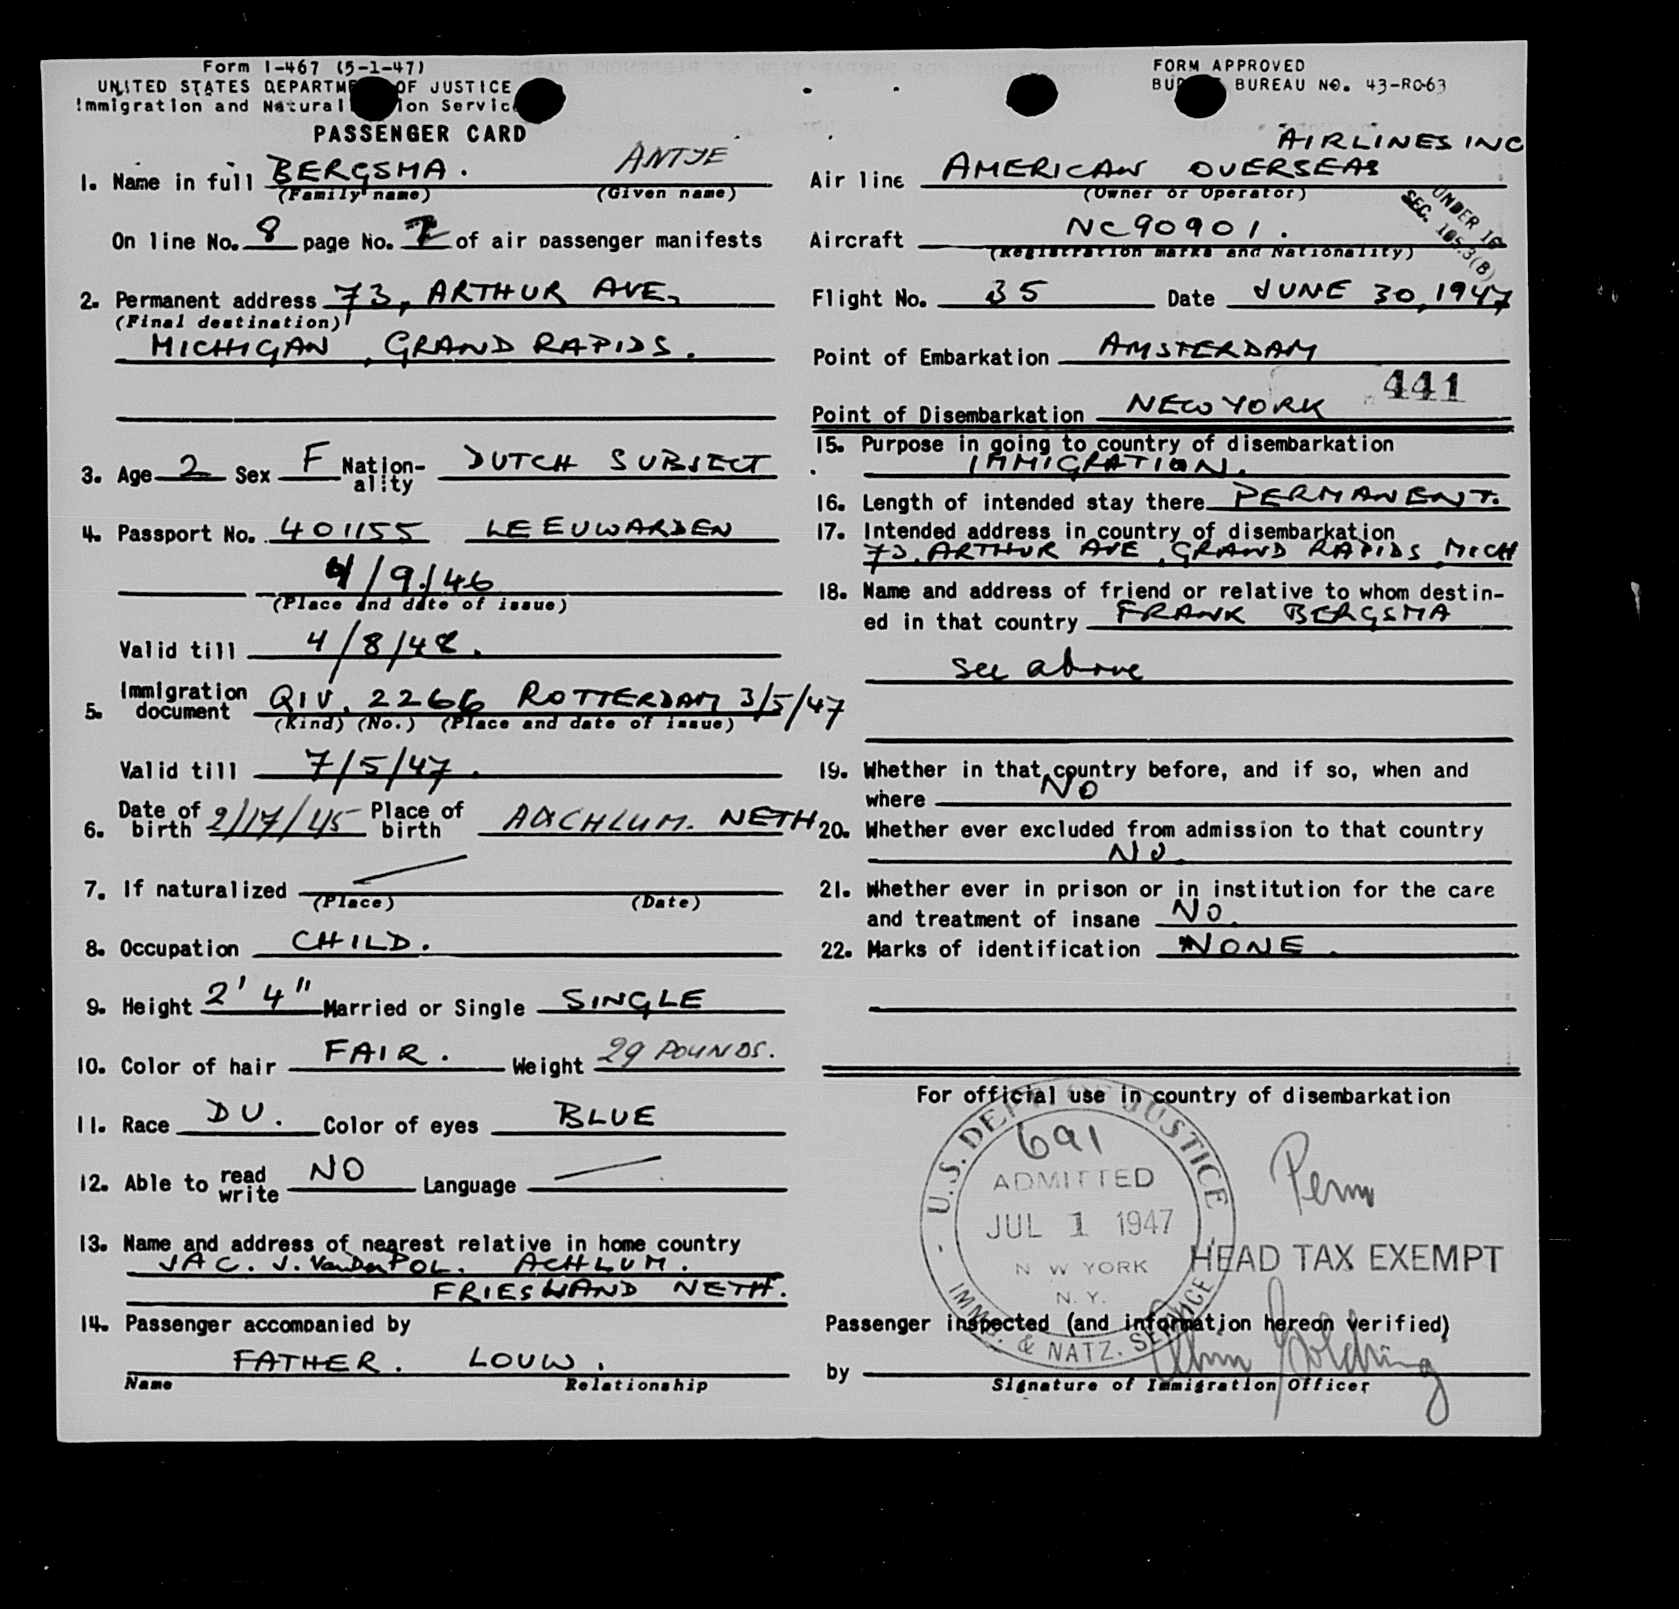 Form I-467 (5-1-47)
UNITED STATES DEPARTME OF JUSTICE
Immigration and Natural ion Servic
PASSENGER CARD
1. Name in full BERGSMA. ANTJE
(Family name) (Given name)
On line No. 8 page No. 2 of air passenger manifests
2. Permanent address 73, ARTHUR AVE,
(Final destination)
MICHIGAN, GRAND RAPIDS.
3. Age 2 Sex F Nation-ality DUTCH SUBJECT
4. Passport No. 401155 LEEUWARDEN
4/9/46
(Place and date of issue)
Valid till 4/8/48.
5. Immigration document QIV. 2266 ROTTERDAM 3/5/47
(Kind) (No.) (Place and date of issue)
Valid till 7/5/47.
6. Date of birth 2/17/45 Place of birth ACHLUM. NETH
7. If naturalized
(Place) (Date)
8. Occupation CHILD.
9. Height 2' 4" Married or Single SINGLE
10. Color of hair FAIR. Weight 29 POUNDS.
11. Race DU. Color of eyes BLUE
12. Able to read write NO Language
13. Name and address of nearest relative in home country
JAC. J. VanDerPOL. ACHLUM.
FRIESLAND NETH.
14. Passenger accompanied by
FATHER. LOUW.
Name Relationship
FORM APPROVED
BUREAU NO. 43-R063
AIRLINES INC
Air line AMERICAN OVERSEAS
(Owner or Operator)
UNDER 16
SEC. 105.3(B)
Aircraft NC90901.
(Registration marks and Nationality)
Flight No. 35 Date JUNE 30, 1947
Point of Embarkation AMSTERDAM
441
Point of Disembarkation NEW YORK
15. Purpose in going to country of disembarkation
IMMIGRATION.
16. Length of intended stay there PERMANENT.
17. Intended address in country of disembarkation
73, ARTHUR AVE, GRAND RAPIDS, MICH
18. Name and address of friend or relative to whom destin-
ed in that country FRANK BERGSMA
see above
19. Whether in that country before, and if so, when and
where NO
20. Whether ever excluded from admission to that country
NO.
21. Whether ever in prison or in institution for the care
and treatment of insane NO.
22. Marks of identification NONE.
For official use in country of disembarkation
U.S. DEPT OF JUSTICE
691
ADMITTED
JUL 1 1947
N W YORK
N. Y.
IMMG. & NATZ. SERVICE
Perm
HEAD TAX EXEMPT
Passenger inspected (and information hereon verified)
by
Signature of Immigration Officer